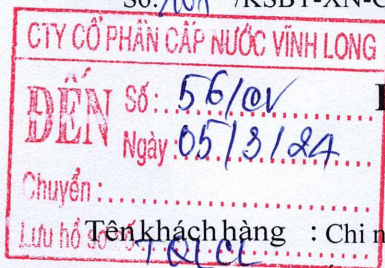 Số: /KSBT-XN-C
CTY CỔ PHẦN CẤP NƯỚC VĨNH LONG
ĐẾN Số: 56/CV
Ngày: 05/3/24
Chuyển:
Lưu hồ sơ số:
Tên khách hàng : Chi n